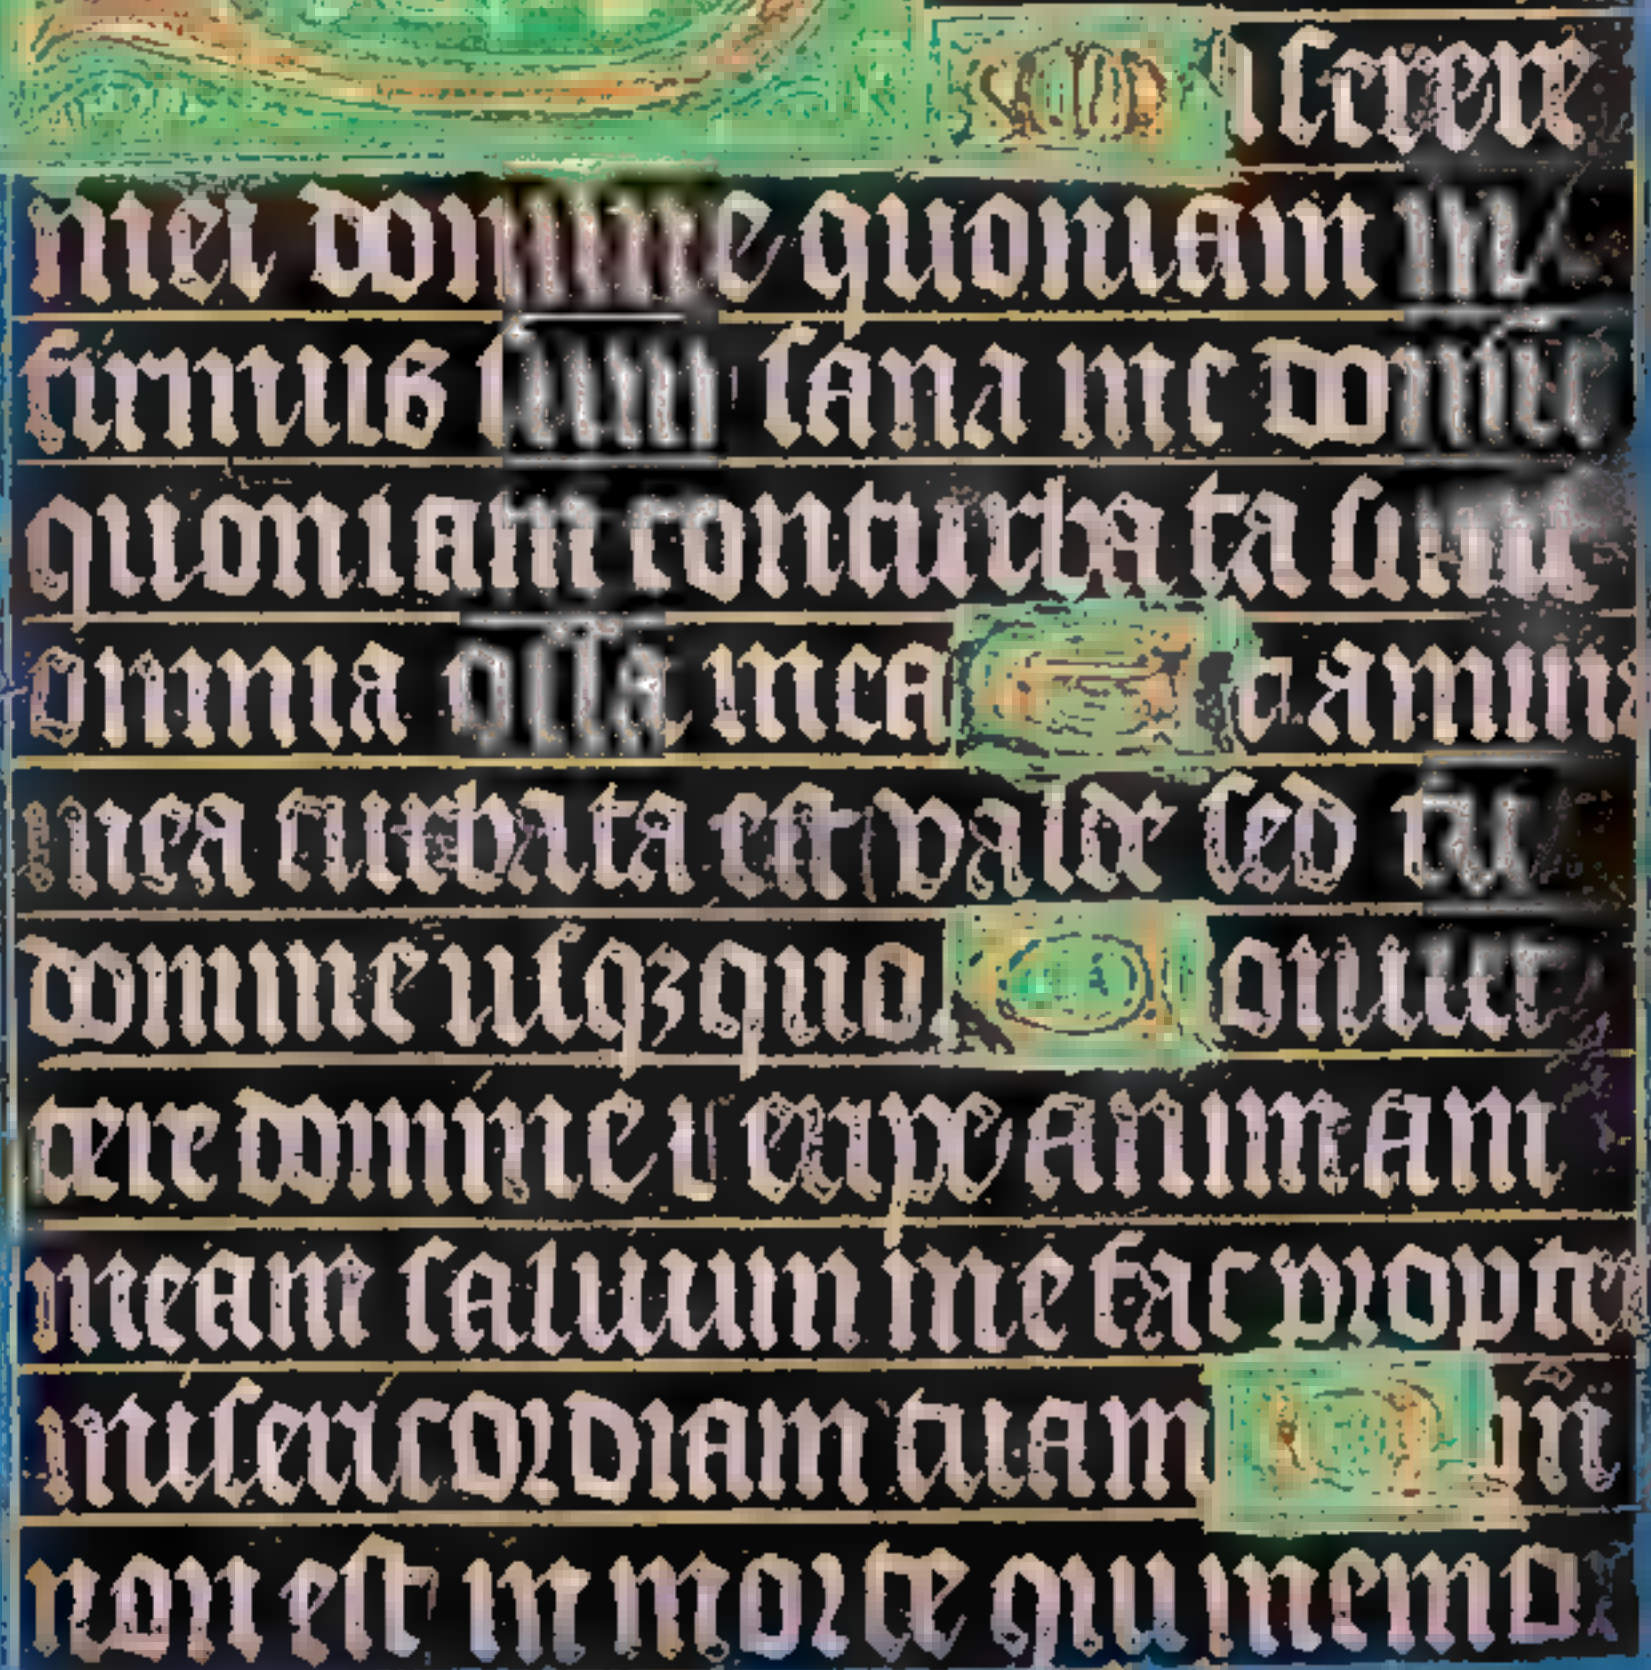 [M]iserere
mei domine quoniam in/
firmus sum sana me domie
quoniam conturbata sunt
omnia ossa mea [E]t anima
mea turbata est valde sed tu
domine usqꝫ quo [C]onuer
tere domine et eripe animam
meam saluum me fac propter
misericordiam tuam [Q]m̄
non est in morte qui memor